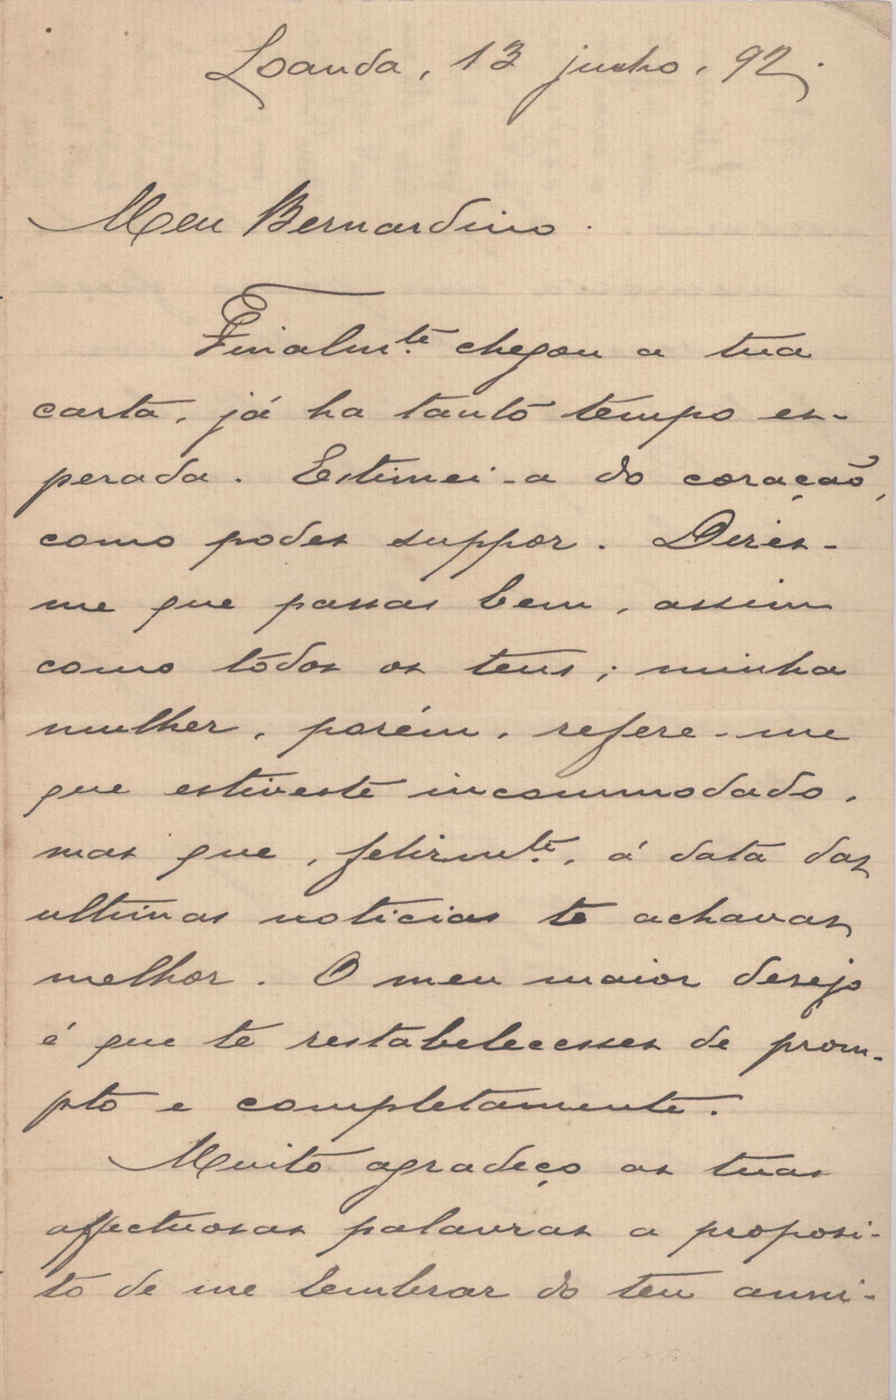 Loanda, 13 junho, 92.
Meu Bernardino.
Finalmte. chegou a tua
carta, já ha tanto tempo es-
perada. Estimei-a do coração,
como podes suppor. Dizes-
me que passas bem, assim
como todos os teus; minha
mulher, porém, refere-me
que estiveste incommodado,
mas que, felizmte., á data das
ultimas noticias te achavas
melhor. O meu maior desejo
é que te restabelecesses de prom-
pto e completamente.
Muito agradeço as tuas
affectuosas palavras a proposi-
to de me lembrar do teu anni-